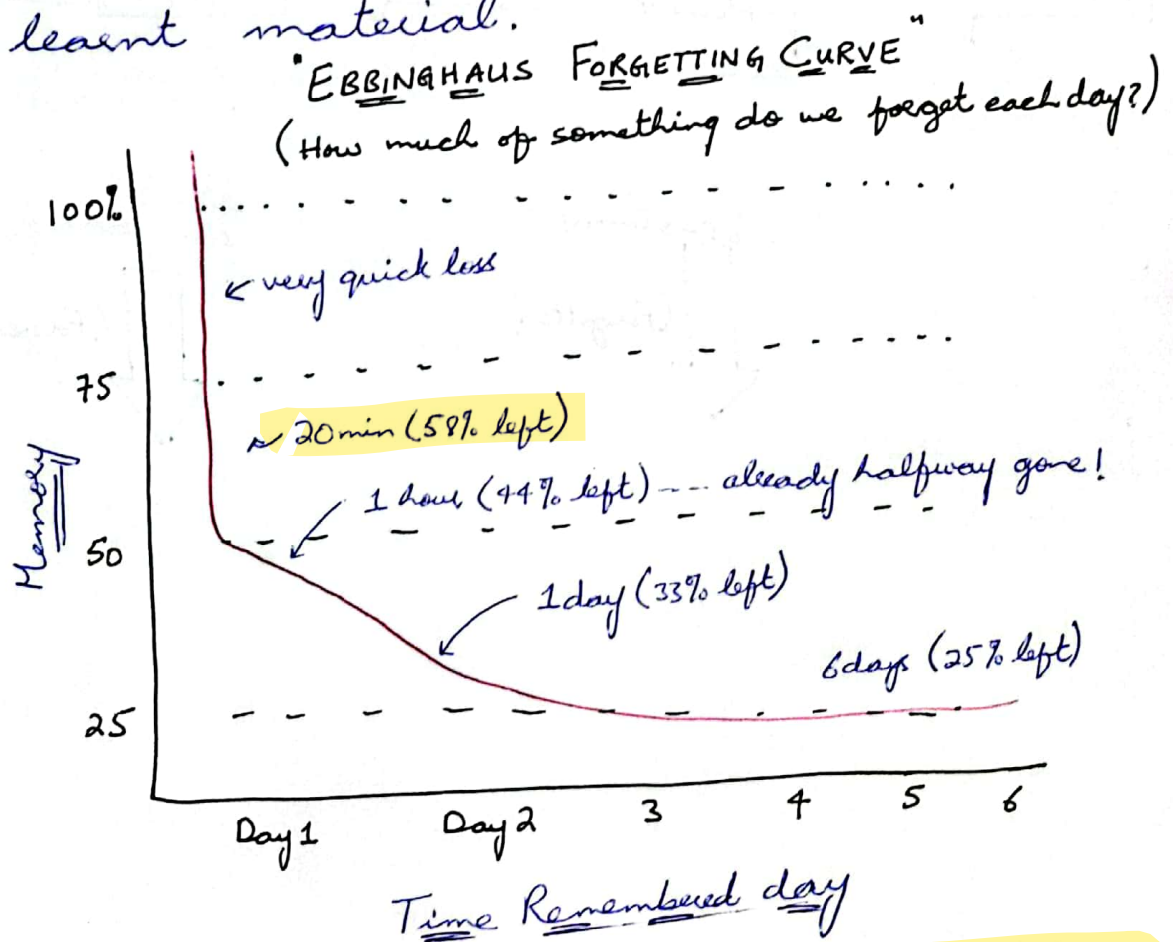 learnt material.
"EBBINGHAUS FORGETTING CURVE"
(How much of something do we forget each day?)
100%
← very quick loss
75
~ 20min (58% left)
1 hour (44% left) --- already halfway gone!
Memory
50
1 day (33% left)
6 days (25% left)
25
Day 1 Day 2 3 4 5 6
Time Remembered day